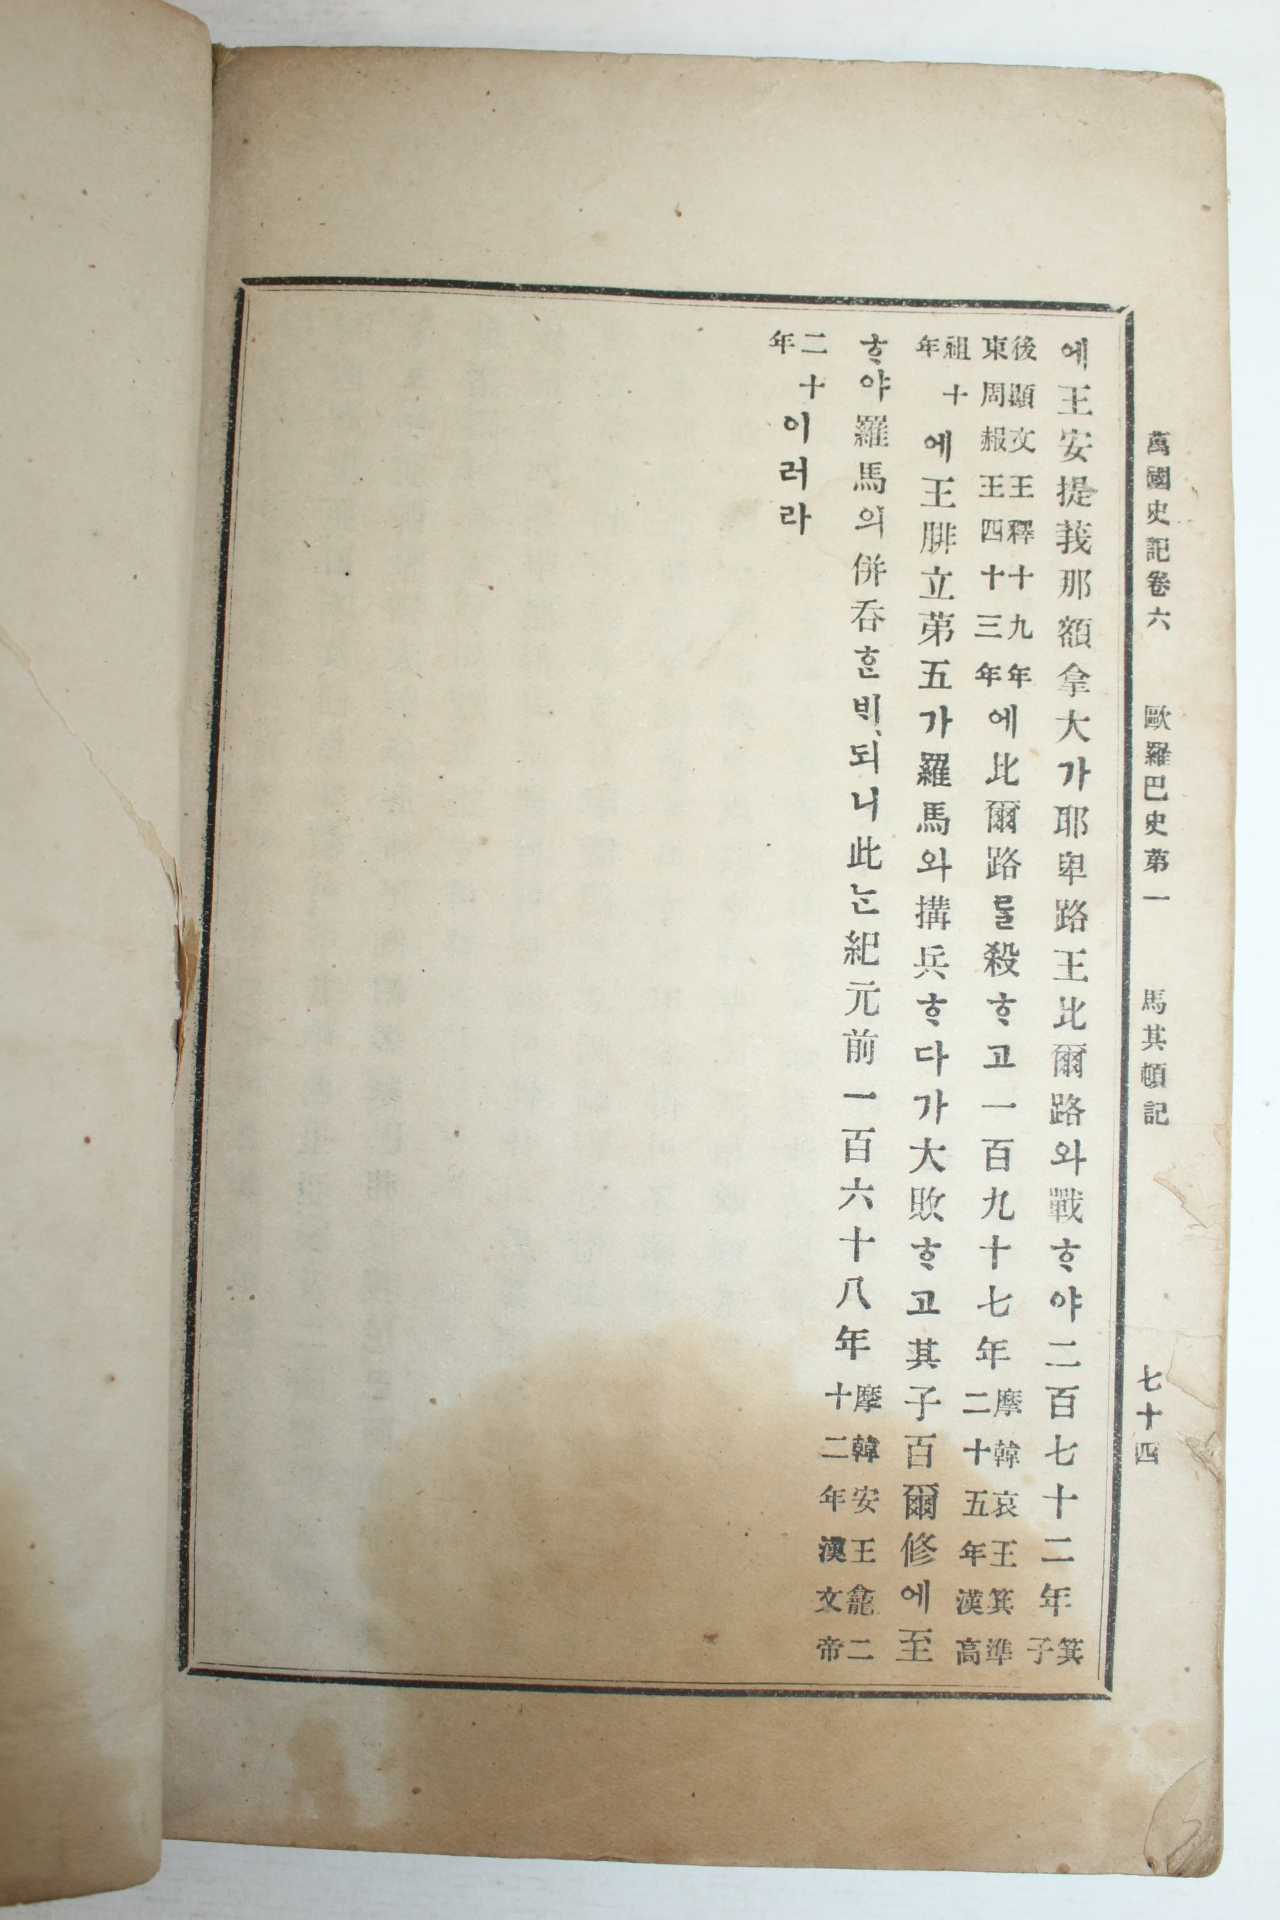 萬國史記卷六 歐羅巴史第一 馬其頓記 七十四
에王安提莪那額拿大가耶卑路王比爾路와戰ᄒᆞ야二百七十二年箕子
後顯文王釋十九年東周赧王四十三年에比爾路를殺ᄒᆞ고一百九十七年摩韓哀王箕準二十五年漢高
祖十年에王腓立第五가羅馬와搆兵ᄒᆞ다가大敗ᄒᆞ고其子百爾修에至
ᄒᆞ야羅馬의併呑ᄒᆞᆫ비되니此ᄂᆞᆫ紀元前一百六十八年摩韓安王龕二十二年漢文帝
二十年이러라